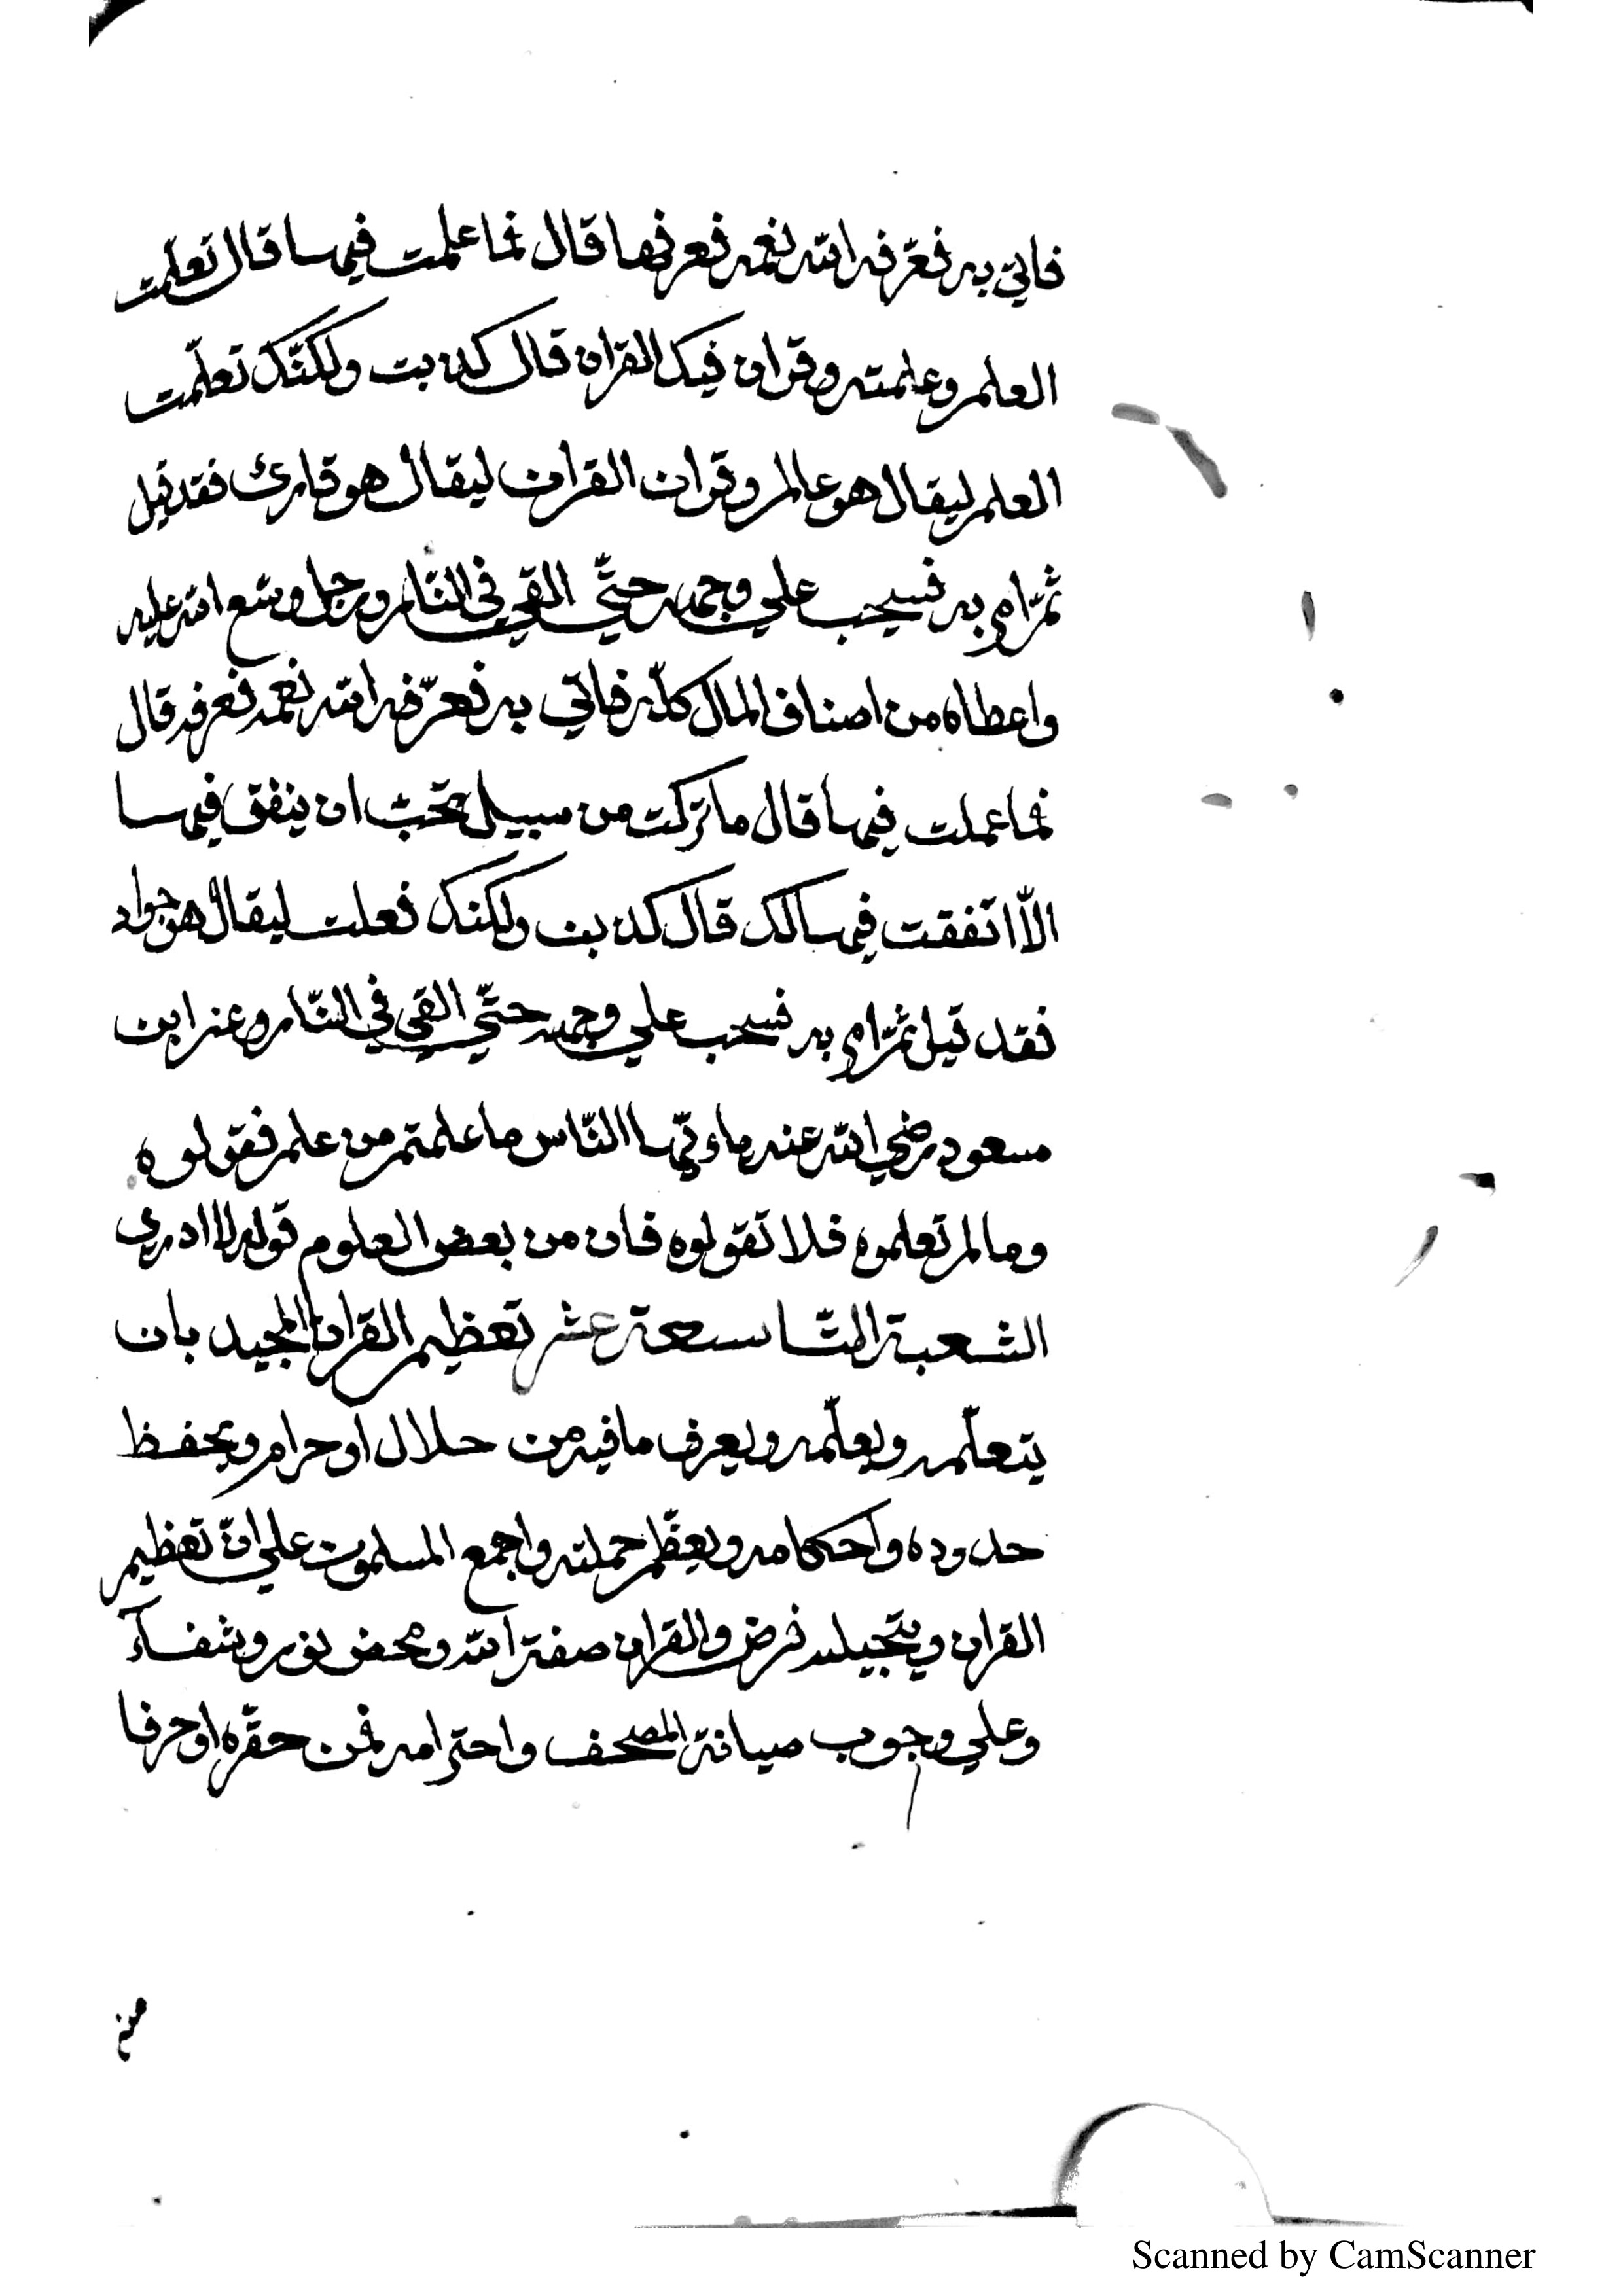 فاتي به فعرّفه الله نعمه فعرفها قال فما علمت فيها قال تعلّمت
العلم وعلمته وقرات فيك القران قال كذبت ولكنّك تعلّمت
العلم ليقال هو عالم وقرات القران ليقال هو قارئ فقد قيل
ثمّ امر به فسحب علي وجهه حتّي القي في النّار ورجل وسّع الله عليه
واعطاه من اصناف المال كلّه فاتي به فعرّفه الله نعمه فعرفه قال
فما عملت فيها قال ما تركت من سبيل تحبّ ان ينفق فيها
الّا انفقت فيها لك قال كذبت ولكنك فعلت ليقال هو جواد
فقد قيل ثمّ امر به فسحب علي وجهه حتّي القي في النّار وعن ابن
مسعود رضي الله عنه يا ايّها النّاس ما علمتم من علم فقولوه
وما لم تعلموه فلا تقولوه فان من بعض العلوم قوله لا ادري
الشعبة التّاسعة عشر تعظيم القران المجيد بان
يتعلّمه ويعلّمه ويعرف ما فيه من حلال او حرام ويحفظ
حدوده واحكامه ويعظّم حملته واجمع المسلمون علي انّ تعظيم
القران وتبجيله فرض والقران صفة الله ومحض نور وشفآء
وعلي وجوب صيانة المصحف واحترامه فمن حقّره او حرفا
Scanned by CamScanner